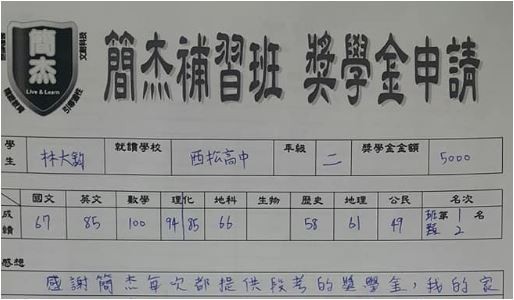 簡杰
Live & Learn
簡杰補習班 獎學金申請
學生 林大鈞 就讀學校 西松高中 年級 二 獎學金金額 5000
國文 英文 數學 理化 地科 生物 歷史 地理 公民 名次
成績 67 85 100 94 85 66 58 61 49 班第 1 名
類 2
感想
感謝簡杰每次都提供段考的獎學金,我的家